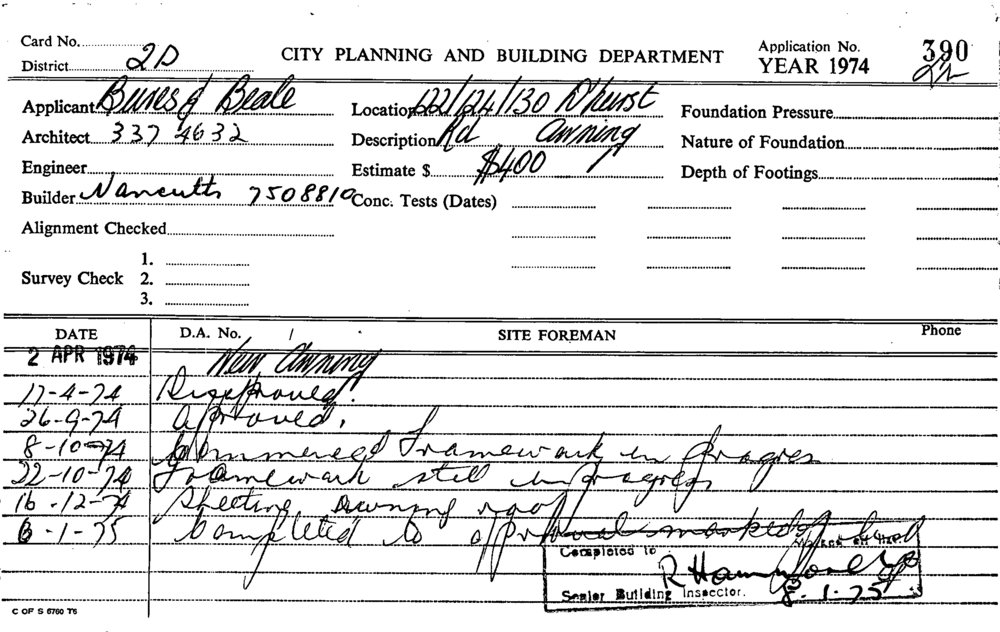 Card No.
District 2D
CITY PLANNING AND BUILDING DEPARTMENT
Application No. 390
YEAR 1974
Applicant Bures & Beale
Location 122/124/130 D'hurst
Foundation Pressure
Architect 337 4632
Description Rd Awning
Nature of Foundation
Engineer
Estimate $ $400
Depth of Footings
Builder Nancutts 7508810
Conc. Tests (Dates)
Alignment Checked
Survey Check
1.
2.
3.
DATE
D.A. No. /
SITE FOREMAN
Phone
2 APR 1974 New Awning
17-4-74 Disapproved.
26-9-74 Approved.
8-10-74 Commenced Framework in progres
22-10-74 Framework still in progress
16-12-74 Sheeting awning roof
6-1-75 Completed to approval marked off
Completed to
R Hammond
Senior Building Inspector. 8-1-75
C OF S 6760 T6